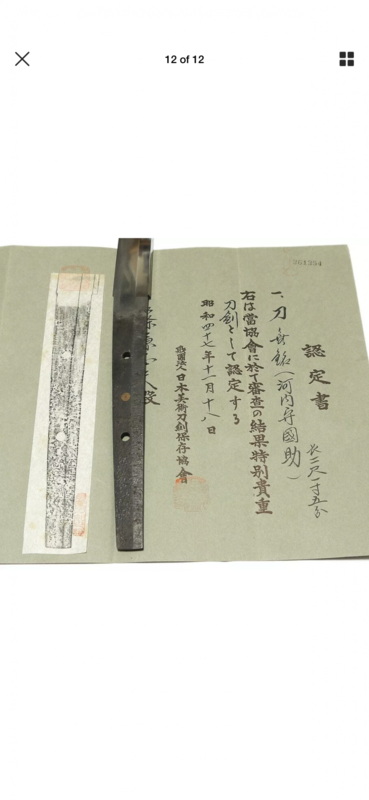 12 of 12
261354
認定書
一、刀 無銘(河内守國助) 長二尺一寸五分
右は當協會に於て審査の結果特別貴重
刀劍として認定する
昭和四十七年十一月十八日
財團法人日本美術刀劍保存協會
殿